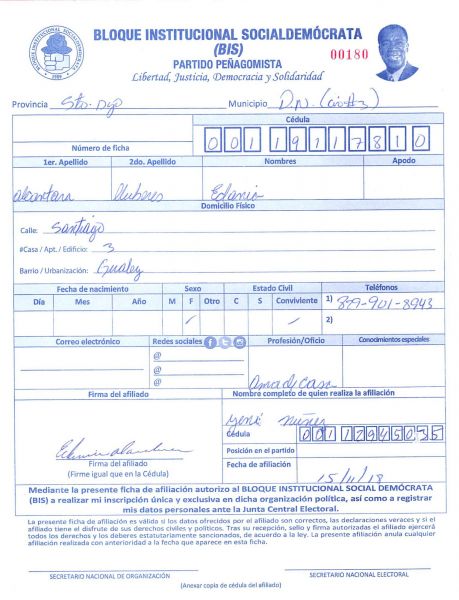 BLOQUE INSTITUCIONAL SOCIALDEMÓCRATA
(BIS)
PARTIDO PEÑAGOMISTA
Libertad, Justicia, Democracia y Solidaridad
00180
BLOQUE INSTITUCIONAL SOCIALDEMOCRATA
Provincia Sto. Dgo Municipio D.N.
Cédula
Número de ficha 00119117810
1er. Apellido 2do. Apellido Nombres Apodo
alcantara lluberes Edania
Domicilio Físico
Calle: Santiago
#Casa / Apt. / Edificio: 3
Barrio / Urbanización: Gualey
Fecha de nacimiento Sexo Estado Civil Teléfonos
Día Mes Año M F Otro C S Conviviente 1) 829-901-8943
2)
Correo electrónico Redes sociales Profesión/Oficio Conocimientos especiales
@
@
@
Ama de casa
Firma del afiliado Nombre completo de quien realiza la afiliación
Yeni Nuñez
Cédula 00112945035
Posición en el partido
Firma del afiliado
(Firme igual que en la Cédula)
Fecha de afiliación 15/11/18
Mediante la presente ficha de afiliación autorizo al BLOQUE INSTITUCIONAL SOCIAL DEMÓCRATA
(BIS) a realizar mi inscripción única y exclusiva en dicha organización política, así como a registrar
mis datos personales ante la Junta Central Electoral.
La presente ficha de afiliación es válida si los datos ofrecidos por el afiliado son correctos, las declaraciones veraces y si el
afiliado tiene el disfrute de sus derechos civiles y políticos. Tras su recepción, sello y firma autorizadas el afiliado ejercerá
todos los derechos y los deberes estatutariamente sancionados, de acuerdo a la ley. La presente afiliación anula cualquier
afiliación realizada con anterioridad a la fecha que aparece en esta ficha.
SECRETARIO NACIONAL DE ORGANIZACIÓN SECRETARIO NACIONAL ELECTORAL
(Anexar copia de cédula del afiliado)